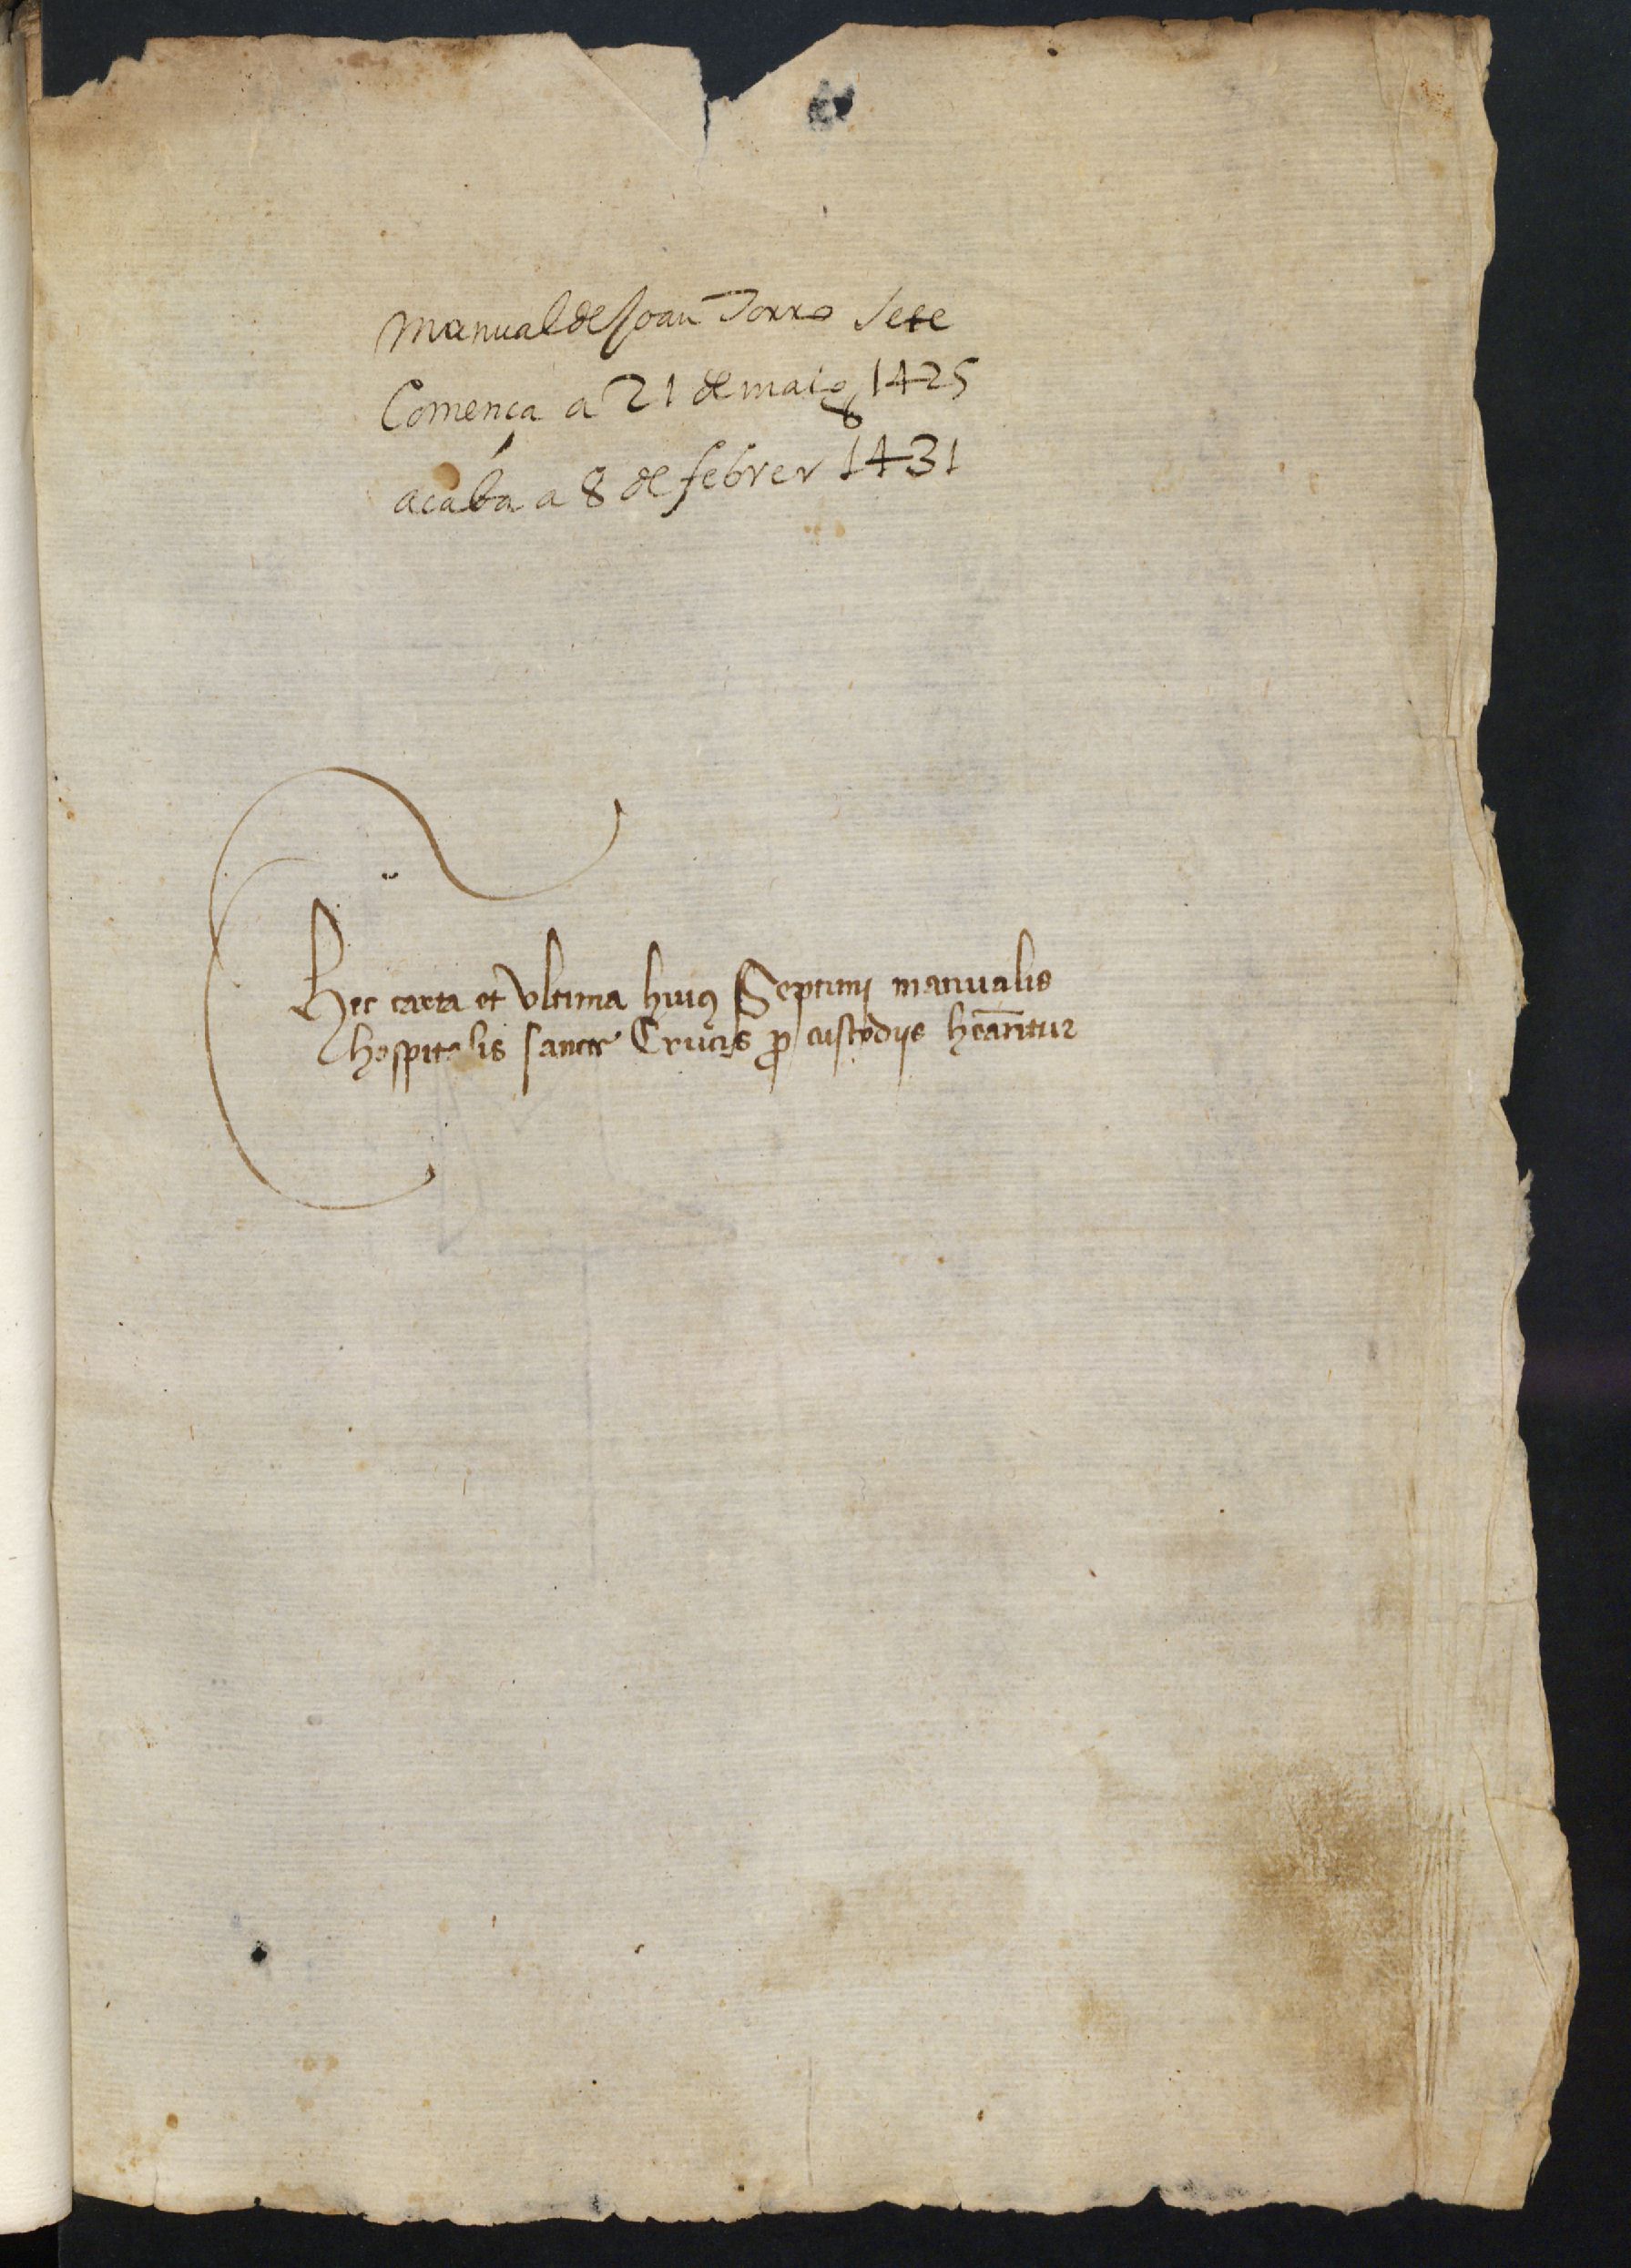 Manual de Joan Torro Sete
Comença a 21 de maig 1425
acaba a 8 de febrer 1431
Hec carta et ultima huiꝰ Septimi manualis
hospitalis sancte Crucis ꝓ custodijs